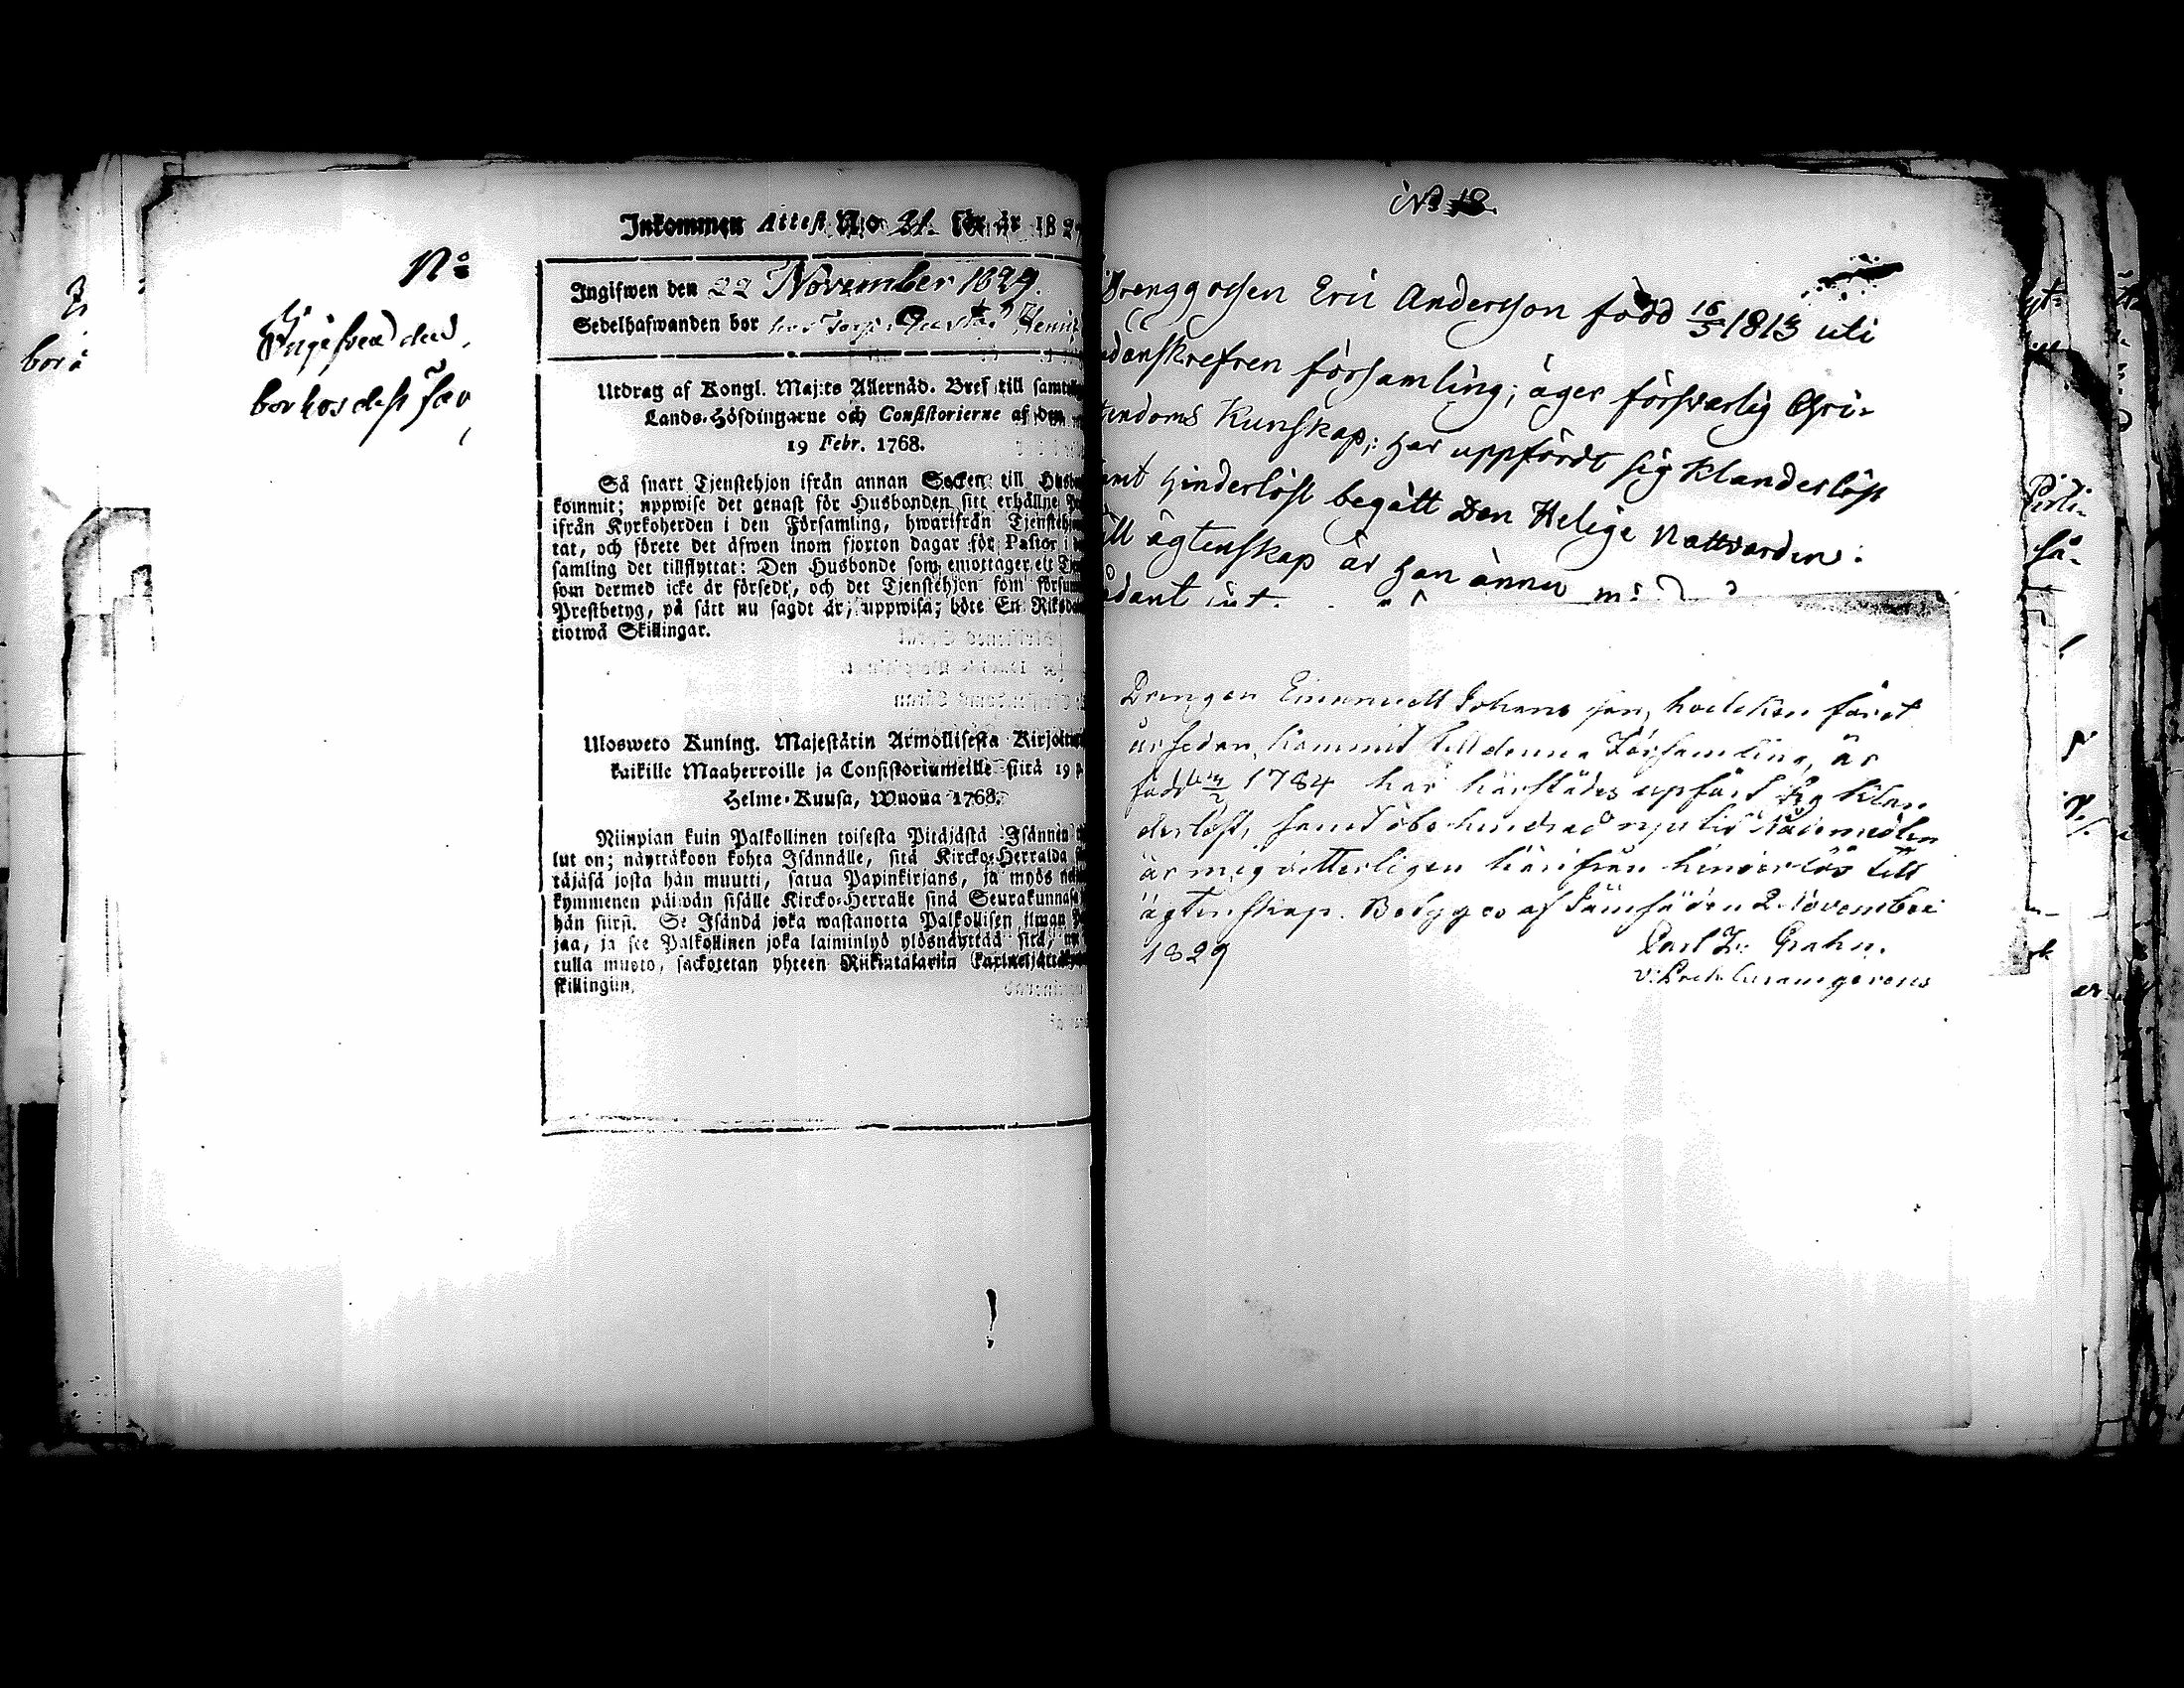 No
Ingifven den
bor hos dess
bor
Inkommen Attest No 21. för år 182
Ingifwen den 22 November 1829.
Sedelhafwanden bor hos
Utdrag af Kongl. Maj:ts Allernåd. Bref till samt
Lands-Höfdingarne och Consistorierne af den
19 Febr. 1768.
Så snart Tjenstehjon ifrån annan Socken till Husb
kommit; uppwise det genast för Husbonden sitt erhållne P
ifrån Kyrkoherden i den Församling, hwarifrån Tjensteh
tat, och förete det äfwen inom fjorton dagar för Pastor i
samling det tillflyttat: Den Husbonde som emottager ett T
som dermed icke är försedt, och det Tjenstehjon som försum
Prestbetyg, på sätt nu sagdt är, uppwisa; böte En Riksda
tiotwå Skillingar.
Ulosweto Kuning. Majestätin Armollisesta Kirjoitu
kaikille Maaherroille ja Consistoriumeille siitä 19 p
Helme-Kuusa, Wuona 1768.
Niinpian kuin Palkollinen toisesta Pitäjästä Isännän
lut on; näyttäkoon kohta Isännälle, sitä Kircko-Herralda
täjäsä josta hän muutti, saatua Papinkirjans, ja myös ne
kymmenen päiwän sisälle Kircko-Herralle sinä Seurakunnas
hän siirsi. Se Isändä joka wastanotta Palkollisen ilman P
jaa, ja see Palkollinen joka laiminlyö ylösnäyttää sitä,
tulla muoto, sackotetan yhteen Riikintalariin
skillingiin.
No 18.
Drenggossen Eric Andersson född 16/5 1813 uti
danskrefven församling; äger försvarlig Chri-
tendoms Kunskap; har uppfördt sig Klanderlöst
amt hinderlöst begått Den Helige Nattvarden.
ill ägtenskap är han ännu
dant int
Drengen Emanuell Johansson, hvilcken förut
år sedan kommit till denna Församling, är
född 1784 har härstädes upfört sig klan
derlöst, samt obehindrad njutit Nådemedlen
är mig vitterligen härifrån hinderlös till
ägtenskap. Betygges af Jämsä den 2 November
1829
Carl Z. Grahn.